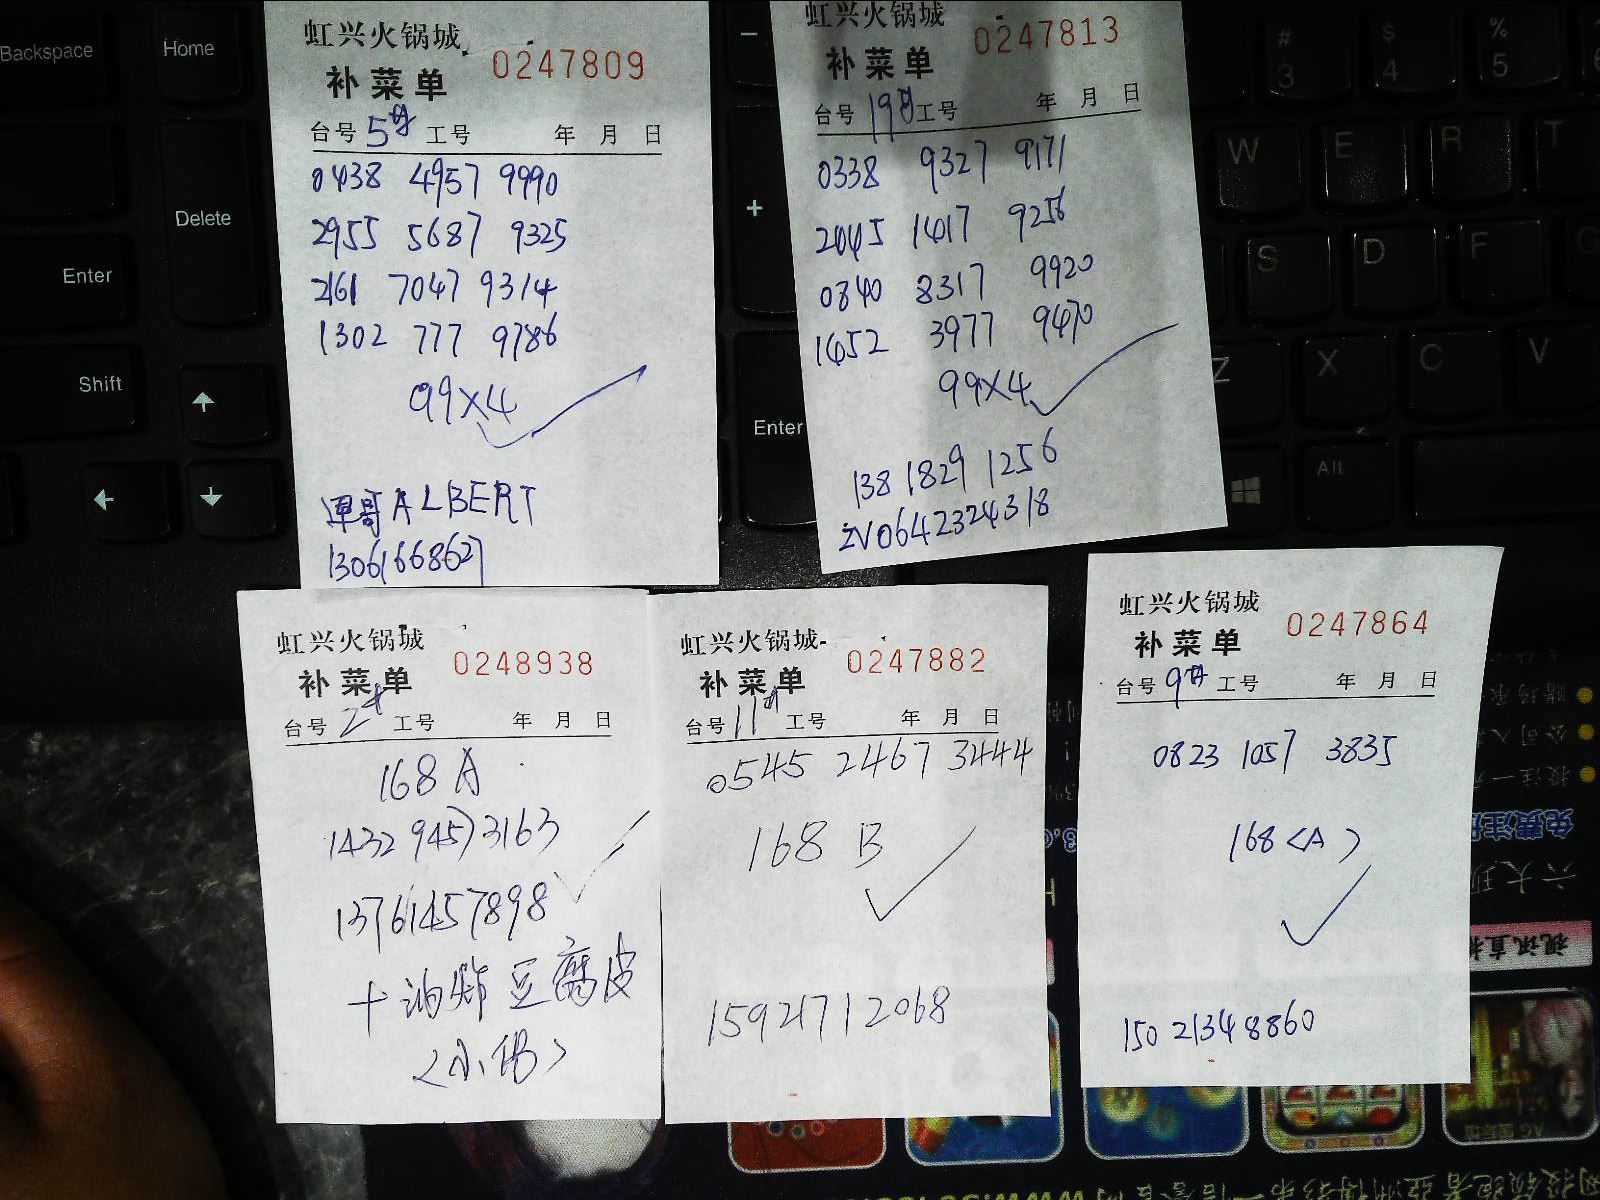 虹兴火锅城
0247809
补菜单
台号 5 工号 年 月 日
0438 4957 9990
2955 5687 9325
2161 7047 9314
1302 777 9786
99×4
军哥ALBERT
13061668627
虹兴火锅城
0247813
补菜单
台号 19 工号 年 月 日
0338 9327 9171
2045 1417 9256
0840 8317 9920
1452 3977 9470
99×4
138 1829 1256
ZV0642324318
虹兴火锅城
0248938
补菜单
台号 2 工号 年 月 日
168 A
1432 9457 3163
13761457898
十油炸豆腐皮
虹兴火锅城
0247882
补菜单
台号 11 工号 年 月 日
0545 2467 3444
168 B
15921712068
虹兴火锅城
0247864
补菜单
台号 9 工号 年 月 日
0823 1057 3835
168<A>
150 21348860
Backspace
Home
Delete
Enter
Shift
Enter
Alt
# 3
$ 4
% 5
W
E
R
T
S
D
F
G
Z
X
C
V
视讯直播